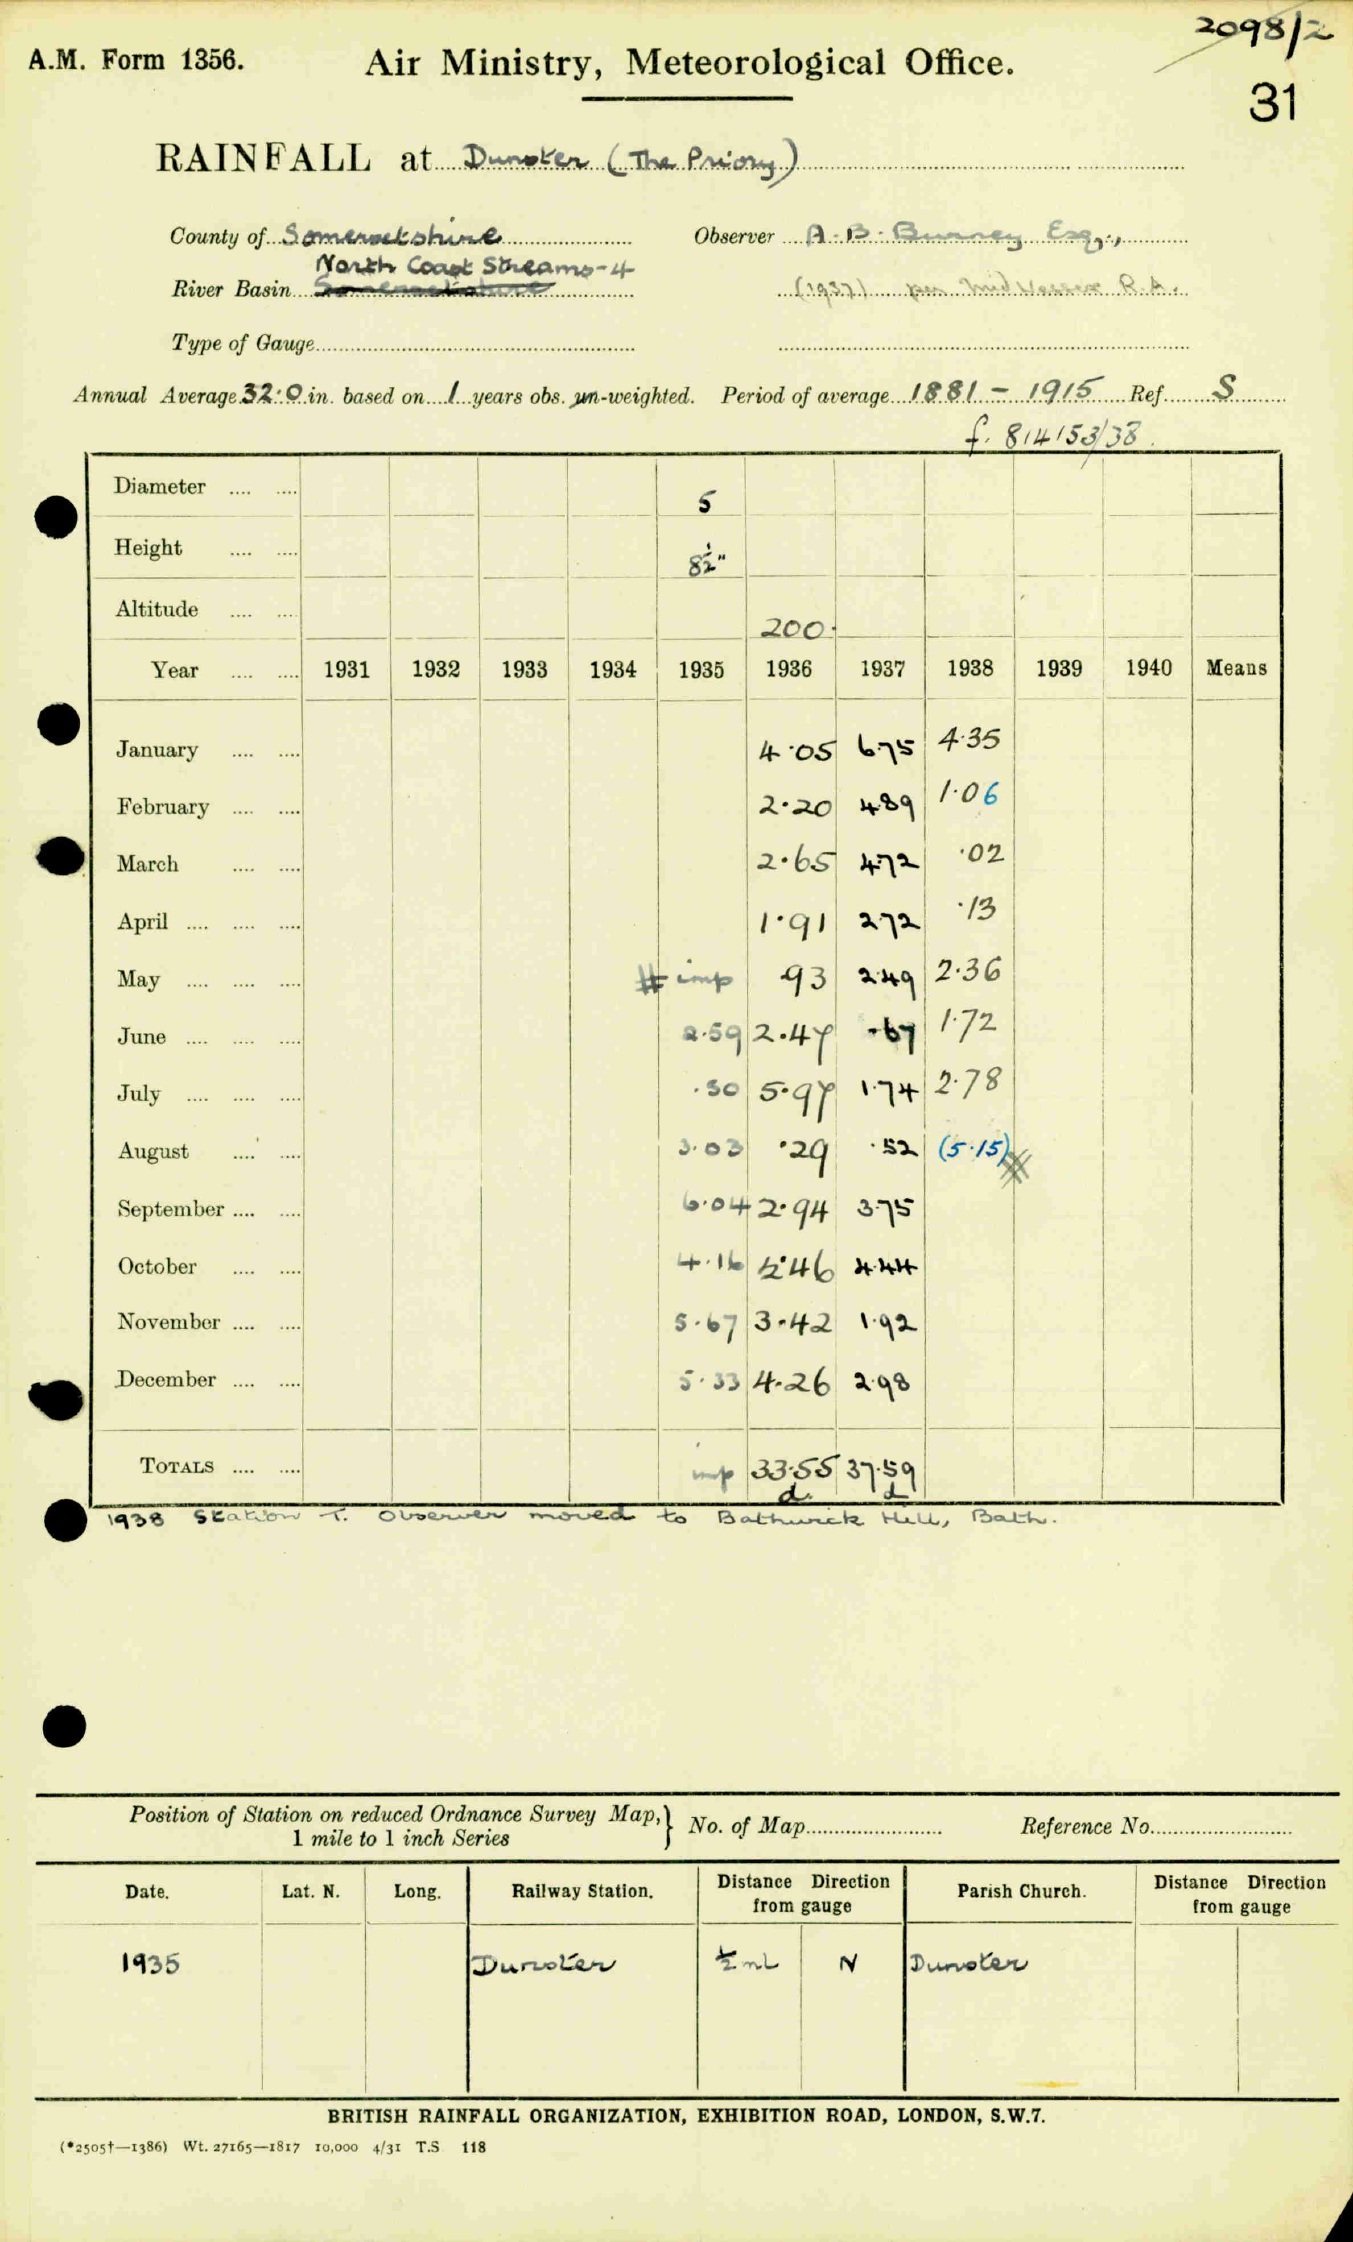 2098/2
A.M. Form 1356. Air Ministry, Meteorological Office.
31
RAINFALL at Dunster (The Priory)
County of Somersetshire Observer A. B. Burney Esq.,
North Coast Streams-4
River Basin Somersetshire (1937) per Mid Wessex R.A.
Type of Gauge
Annual Average 32.0 in. based on 1 years obs. un-weighted. Period of average 1881 - 1915 Ref. S
f. 814153/38
Diameter .... .... 5
Height .... .... 8½"
Altitude .... .... 200
Year .... .... 1931 1932 1933 1934 1935 1936 1937 1938 1939 1940 Means
January .... .... 4.05 6.75 4.35
February .... .... 2.20 4.89 1.06
March .... .... 2.65 4.72 .02
April .... .... .... 1.91 2.72 .13
May .... .... .... # imp .93 2.49 2.36
June .... .... .... 2.59 2.47 .67 1.72
July .... .... .... .30 5.97 1.74 2.78
August .... .... 3.03 .29 .52 (5.15) #
September .... .... 6.04 2.94 3.75
October .... .... 4.16 2.46 4.44
November .... .... 5.67 3.42 1.92
December .... .... 5.33 4.26 2.98
TOTALS .... .... imp 33.55 37.59
d. d
1938 Station T. Observer moved to Bathwick Hill, Bath.
Position of Station on reduced Ordnance Survey Map, } No. of Map Reference No.
1 mile to 1 inch Series
Date. Lat. N. Long. Railway Station. Distance Direction from gauge Parish Church. Distance Direction from gauge
1935 Dunster ½ ml N Dunster
BRITISH RAINFALL ORGANIZATION, EXHIBITION ROAD, LONDON, S.W.7.
(*2505†—1386) Wt. 27165—1817 10,000 4/31 T.S 118